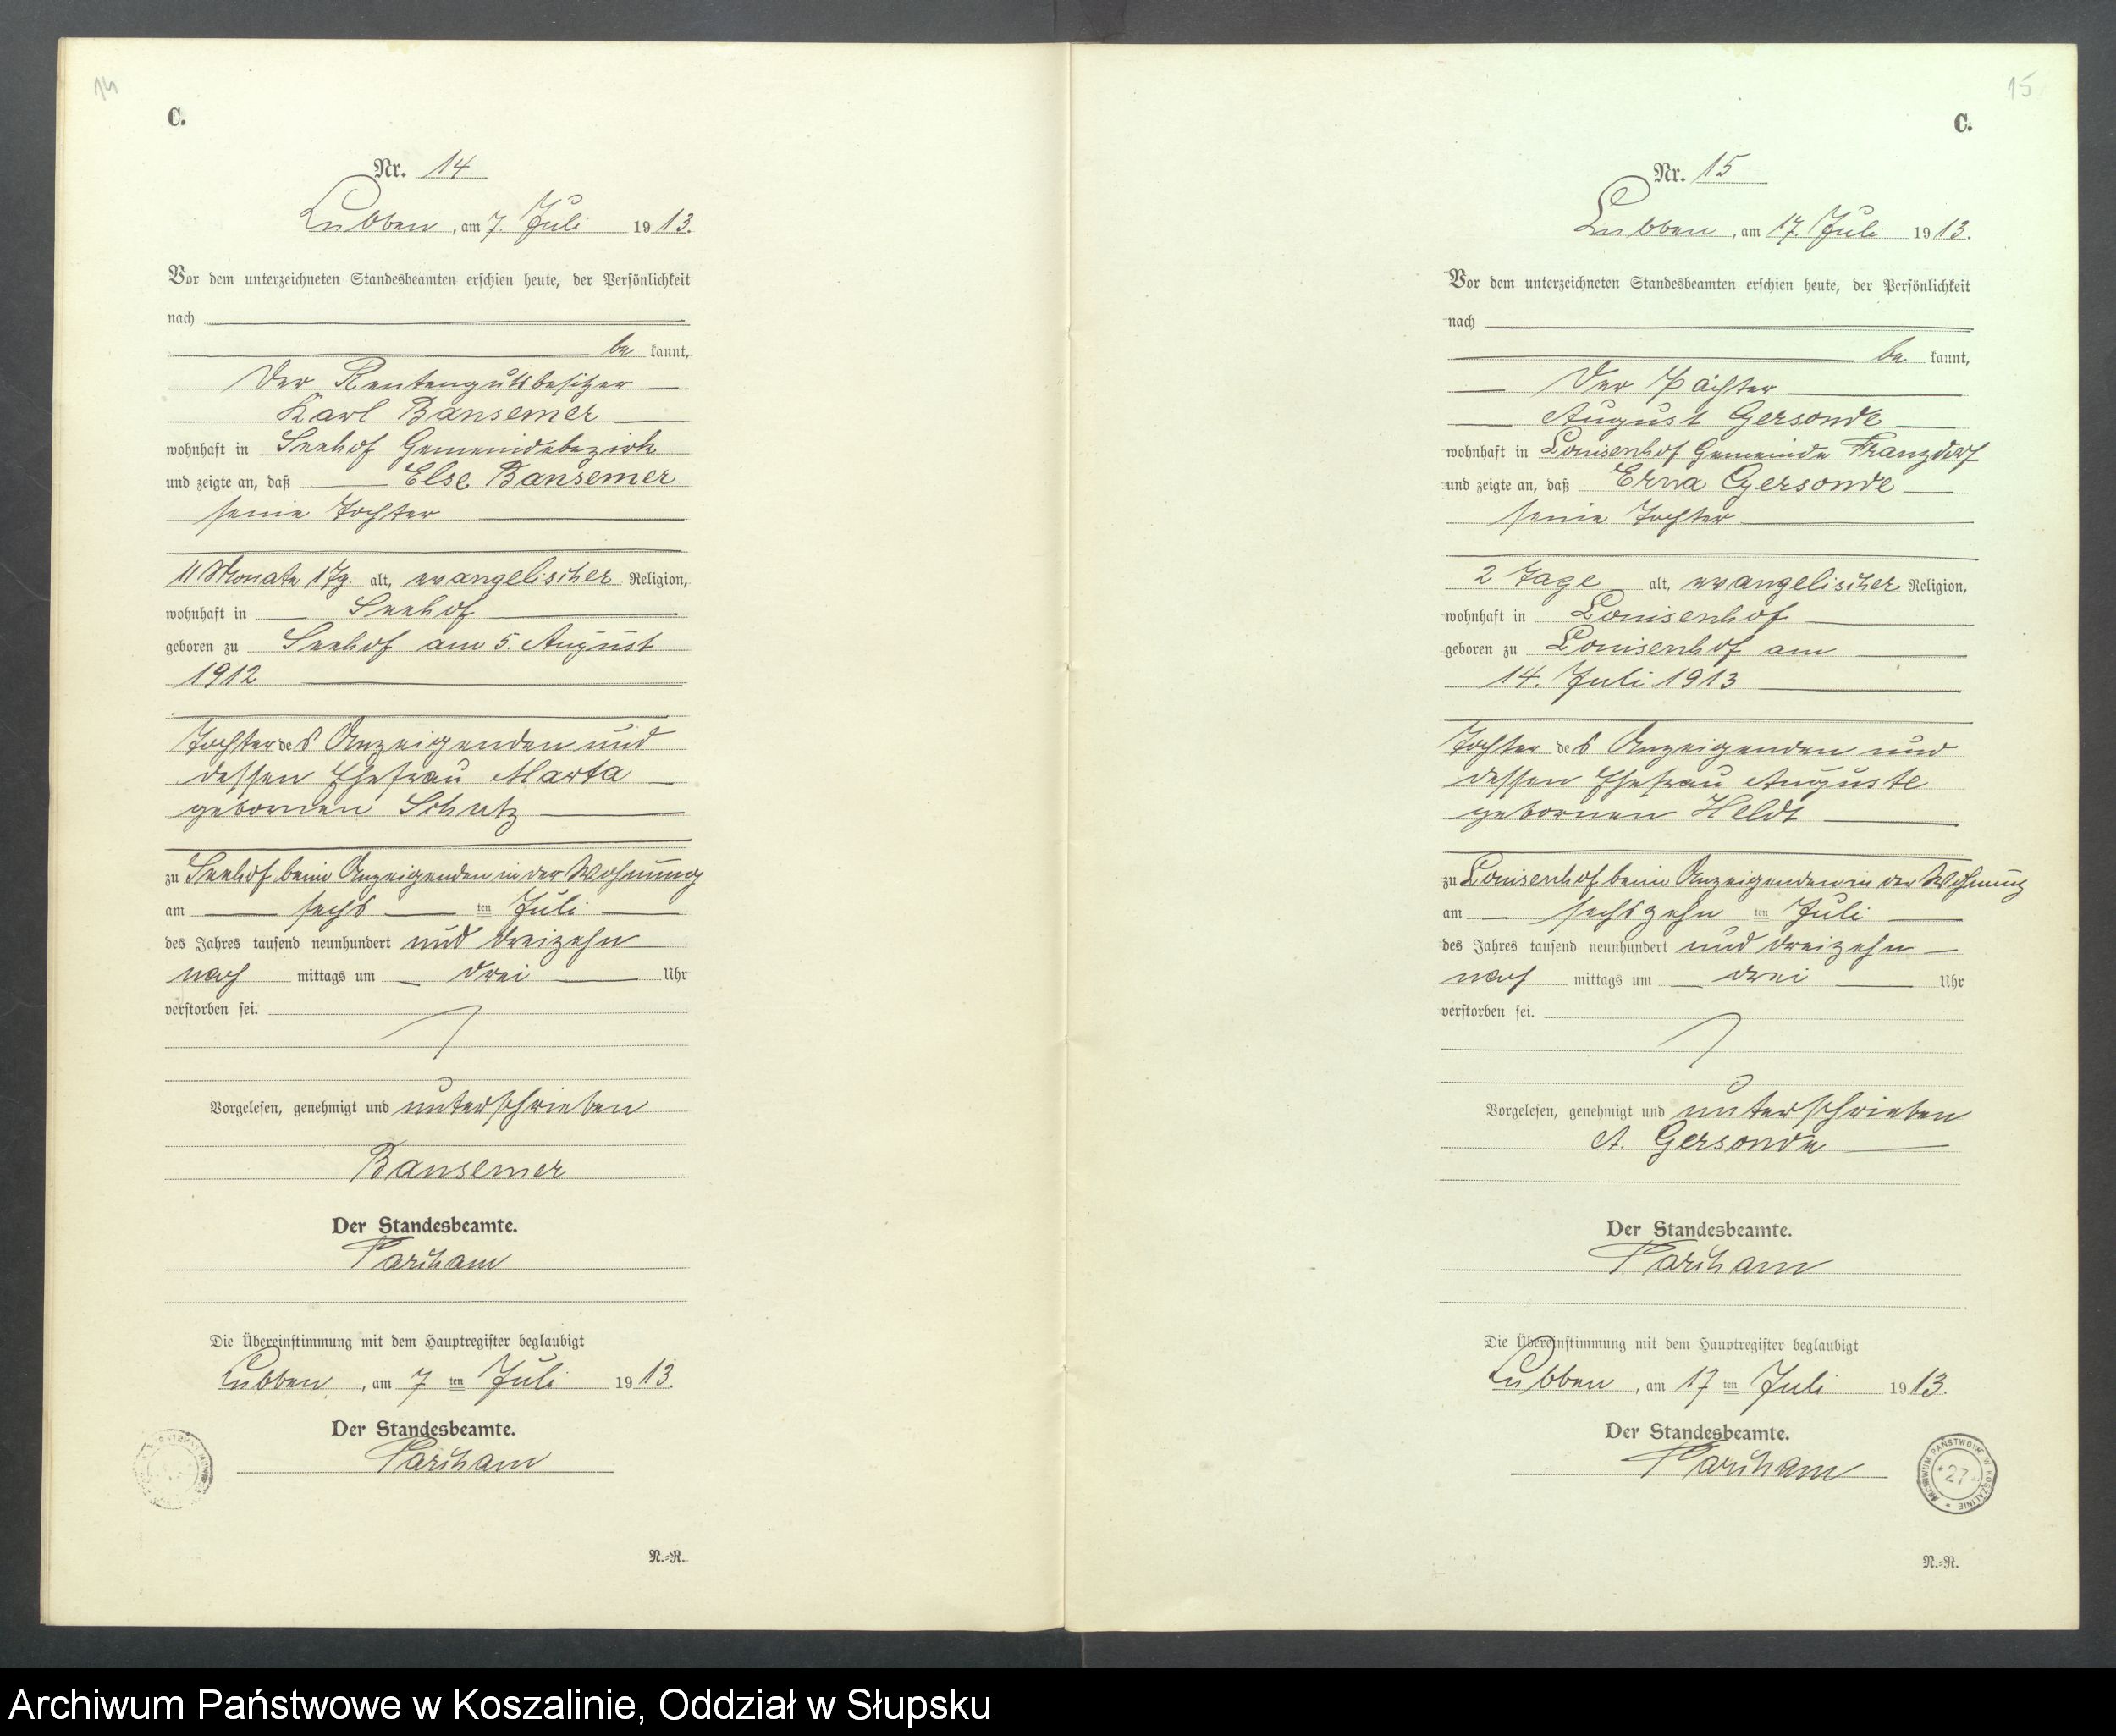 14
C.
Nr. 14
Lubben, am 7. Juli 1913.
Vor dem unterzeichneten Standesbeamten erschien heute, der Persönlichkeit
nach
be kannt,
der Rentengutsbesitzer
Karl Bansemer
wohnhaft in Seehof Gemeindebezirk
und zeigte an, daß Else Bansemer
seine Tochter
11 Monate 1 Tg. alt, evangelischer Religion,
wohnhaft in Seehof
geboren zu Seehof am 5. August
1912
Tochter des Anzeigenden und
dessen Ehefrau Marta
gebornen Schutz
zu Seehof beim Anzeigenden in der Wohnung
am sechs ten Juli
des Jahres tausend neunhundert und dreizehn
nach mittags um drei Uhr
verstorben sei.
Vorgelesen, genehmigt und unterschrieben
Bansemer
Der Standesbeamte.
Die Übereinstimmung mit dem Hauptregister beglaubigt
Lubben, am 7 ten Juli 1913.
Der Standesbeamte.
N.-R.
15
C.
Nr. 15
Lubben, am 17. Juli 1913.
Vor dem unterzeichneten Standesbeamten erschien heute, der Persönlichkeit
nach
be kannt,
der Pächter
August Gersonde
wohnhaft in Louisenhof Gemeinde Franzdorf
und zeigte an, daß Erna Gersonde
seine Tochter
2 Tage alt, evangelischer Religion,
wohnhaft in Louisenhof
geboren zu Louisenhof am
14. Juli 1913
Tochter des Anzeigenden und
dessen Ehefrau Auguste
gebornen Heldt
zu Louisenhof beim Anzeigenden in der Wohnung
am sechszehn ten Juli
des Jahres tausend neunhundert und dreizehn
nach mittags um drei Uhr
verstorben sei.
Vorgelesen, genehmigt und unterschrieben
A. Gersonde
Der Standesbeamte.
Die Übereinstimmung mit dem Hauptregister beglaubigt
Lubben, am 17 ten Juli 1913.
Der Standesbeamte.
ARCHIWUM PAŃSTWOWE W KOSZALINIE
27
N.-R.
Archiwum Państwowe w Koszalinie, Oddział w Słupsku